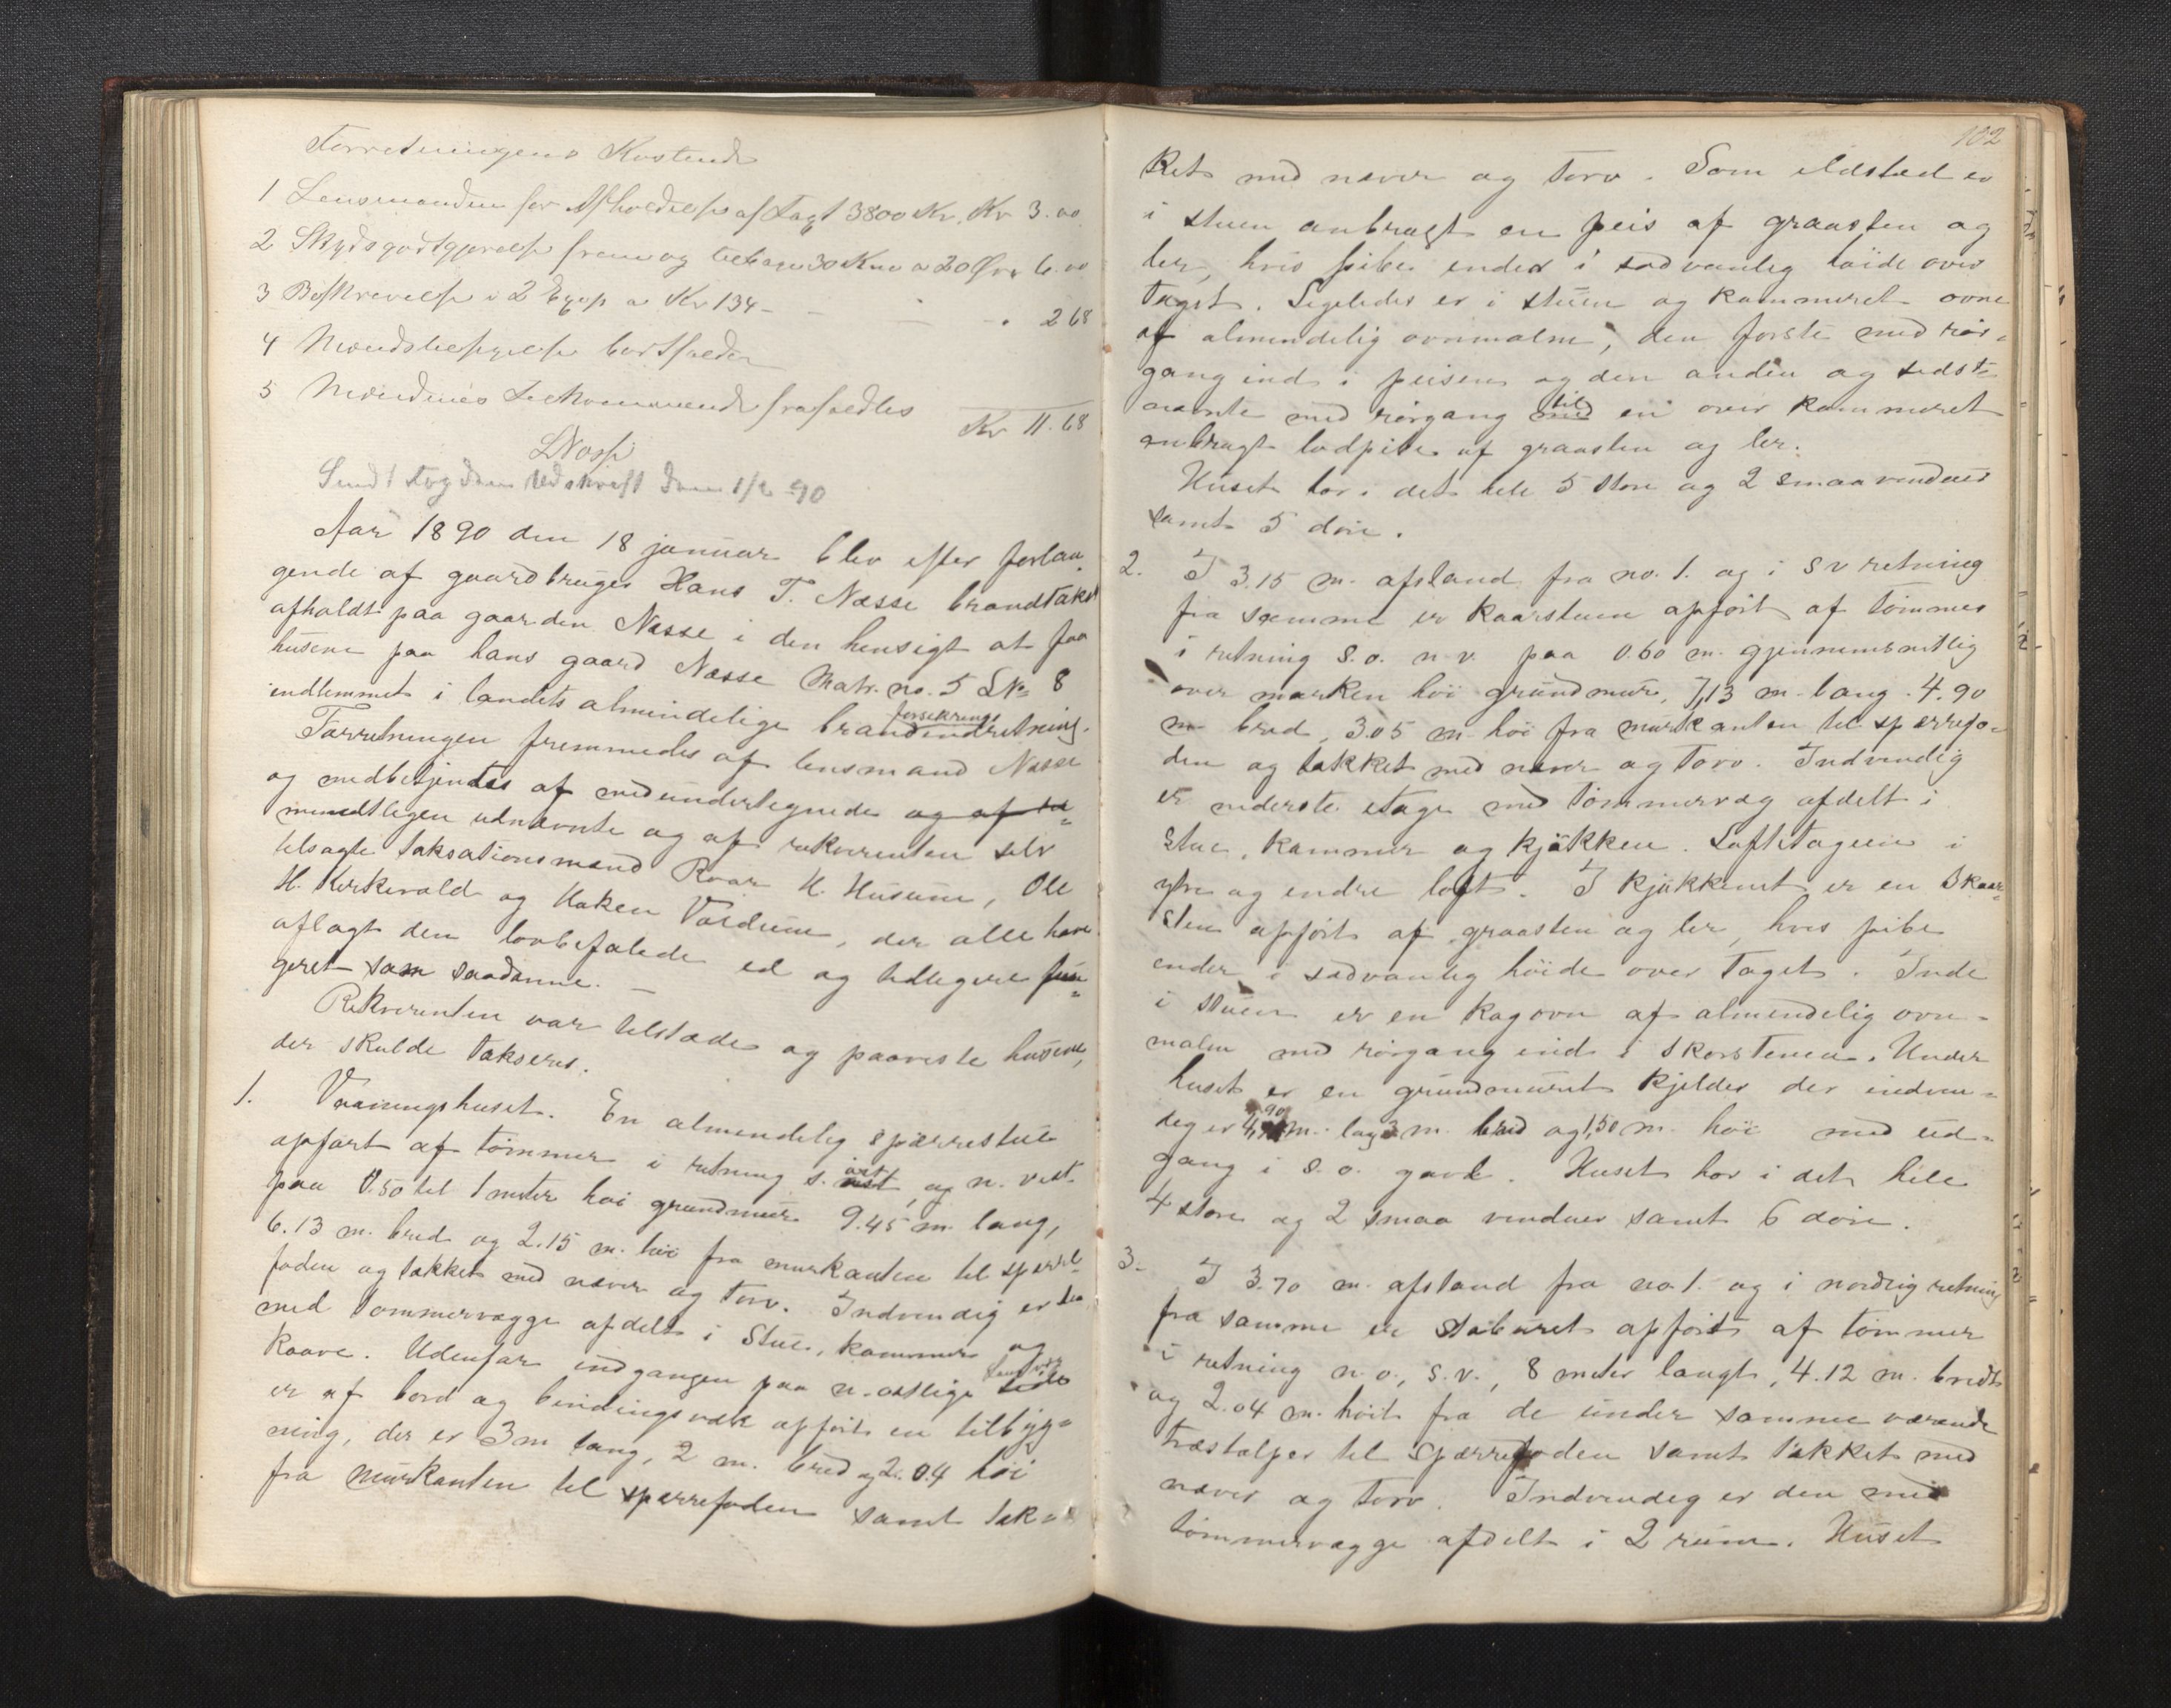 Forretningens Kostende
1 Lensmanden for Afholdelse af Taxt 3800 Kr. Kr 3.00
2 Skydsgodtgjørelse frem og tilbage 30 Km a 20 Øre 6.00
3 Beskrivelse i 2 Exp. a Kr 134 - - - 2 68
4 Mændstilsigelse bortfalder
5 Mændenes Tilkommende frafaldtes
Kr 11.68
LNæsse
Sendt Udskrift den 1/2 90
Aar 1890 den 18 januar blev efter forlan-
gende af gaardbruger Hans T. Næsse brandtakst
afholdt paa gaarden Næsse i den hensigt at faa
husene paa hans gaard Næsse Matr. no. 5 LNo 8
indlemmet i landets almindelige brandforsikringsindretning.
Forretningen fremmedes af lensmand Næsse
og medbetjentes af medundertegnede og af
mundtligen udnævnte og af rekvirenten selv
tilsagte taksationsmænd Roar H. Husum, Ole
H. Kirkevold og Haken Voldum, der alle have
aflagt den lovbefalede ed og tidligere fun-
geret som saadanne. —
Rekvirenten var tilstede og paaviste husene,
der skulde takseres.
1. Vaaningshuset. En almindelig spærrestue
opført af tømmer i retning s. øst og n. vest
paa 0.50 til 1 meter høi grundmur 9.45 m. lang,
6.13 m. bred og 2.15 m. høi fra murkanten til sperre-
foden og takket med næver og torv. Indvendig er den
med tømmervægge afdelt i stue, kammer og
kaave. Udenfor indgangen paa n. østlige
er af bord og bindingsværk opført en tilbyg-
ning, der er 3 m lang, 2 m. bred og 2.04 høi
fra murkanten til sperrefoden samt tæk-
102
ket med næver og torv. Som ildsted er
i stuen anbragt en peis af graasten og
ler, hvis pibe ender i sædvanlig høide over
taget. Ligeledes er i stuen og kammeret ovne
af almindelig ovnmalm, den første med rør-
gang ind i peisen og den anden og sidst-
nævnte med rørgang til en over kammeret
anbragt lodpibe af graasten og ler.
Huset har i det hele 5 store og 2 smaa vinduer
samt 5 døre.
2. I 3.15 m. afstand fra no. 1. og i s v retning
fra samme er kaarstuen opført af tømmer
i retning s. o. n v. paa 0.60 m. gjennemsnitlig
over marken høi grundmur, 7,13 m. lang. 4.90
m. bred, 3.05 m. høi fra murkanten til sperrefo-
den og takket med næver og torv. Indvendig
er nederste etage med tømmervæg afdelt i
stue, kammer og kjøkken. Loftetagen i
ytre og indre loft. I kjøkkenet er en skor-
sten opført af graasten og ler, hvis pibe
ender i sædvanlig høide over taget. Inde
i stuen er en kogovn af almindelig ovn-
malm med rørgang ind i skorstenen. Under
huset er en grundmuret kjelder der indven-
dig er 4,90 m. lang 3 m. bred og 1,50 m. høi med ud-
gang i s. o. gavl. Huset har i det hele
4 store og 2 smaa vinduer samt 6 døre.
3. I 3.70 m. afstand fra no. 1. og i nordlig retning
fra samme er staburet opført af tømmer
i retning n. o., s. v., 8 meter langt, 4.12 m. bredt
og 2.04 m. høit fra de under samme værende
træstolper til sperrefoden samt takket med
næver og torv. Indvendig er den med
tømmervægge afdelt i 2 rum. Huset